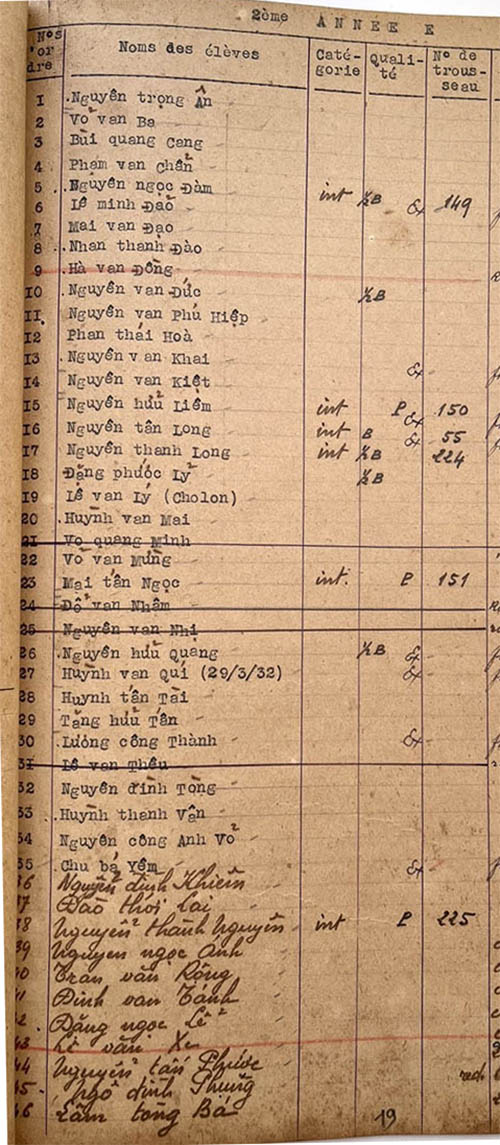 2ème ANNEE E
Nos d'or dre Noms des élèves Caté-gorie Quali-té Nº de trous-seau
1 Nguyên trọng Ân
2 Võ van Ba
3 Bùi quang Cang
4 Phạm van Chẩn
5 Nguyên ngọc Đàm
6 Lê minh Đảo int ½B Ex 149
7 Mai van Đạo
8 Nhan thanh Đào
9 Hà van Đồng
10 Nguyên van Đức ½B
11 Nguyên van Phú Hiệp
12 Phan thái Hoà
13 Nguyên van Khai Ex
14 Nguyên van Kiệt
15 Nguyên hửu Liêm int P 150
16 Nguyên tân Long int B Ex 55
17 Nguyên thanh Long int ½B Ex 224
18 Đặng phước Lý ½B
19 Lê van Lý (Cholon)
20 Huỳnh van Mai
21 Vo quang Minh
22 Võ van Mừng
23 Mai tấn Ngọc int. P 151
24 Đổ van Nhâm
25 Nguyên van Nhị
26 Nguyên hửu Quang ½B Ex
27 Huỳnh van Quí (29/3/32) Ex
28 Huynh tấn Tài
29 Tăng hửu Tấn
30 Lương công Thành Ex
31 Lê van Thêu
32 Nguyên đình Tòng
33 Huỳnh thanh Vân
34 Nguyên công Anh Võ
35 Chu bá Yêm Ex
36 Nguyễn đình Khiêm
37 Đào thới Lai
38 Nguyễn thành Nguyên int P 225
39 Nguyen ngọc Anh
40 Tran văn Rông
41 Đinh van Tánh
42 Đặng ngọc Lễ
43 Lê văn Xe
44 Nguyễn tấn Phước
45 Ngô đình Phung
46 Lâm tòng Bá
19